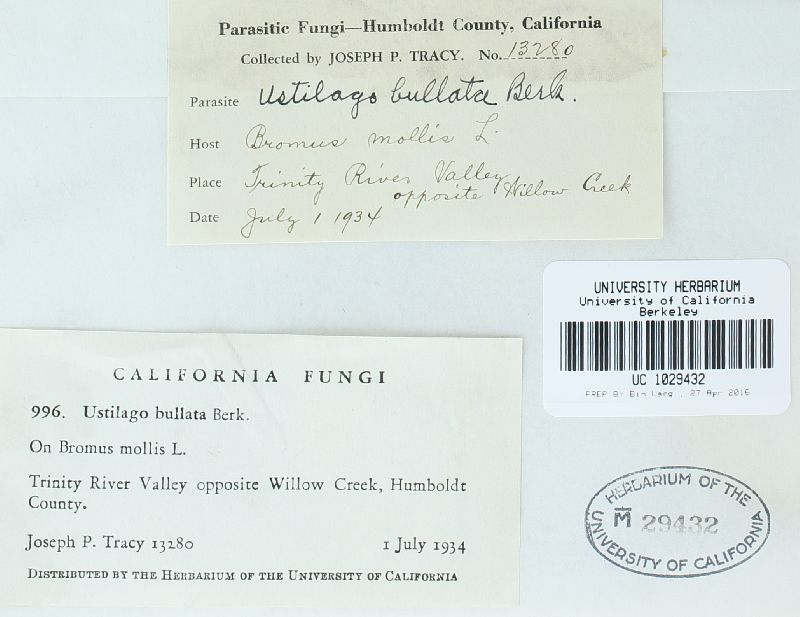 Parasitic Fungi—Humboldt County, California
Collected by JOSEPH P. TRACY. No. 13280
Parasite Ustilago bullata Berk.
Host Bromus mollis L.
Place Trinity River Valley
opposite Willow Creek
Date July 1 1934
UNIVERSITY HERBARIUM
University of California
Berkeley
UC 1029432
PREP By Bin Wang , 27 Apr 2016
CALIFORNIA FUNGI
996. Ustilago bullata Berk.
On Bromus mollis L.
Trinity River Valley opposite Willow Creek, Humboldt
County.
Joseph P. Tracy 13280 1 July 1934
DISTRIBUTED BY THE HERBARIUM OF THE UNIVERSITY OF CALIFORNIA
HERBARIUM OF THE
M 29432
UNIVERSITY OF CALIFORNIA